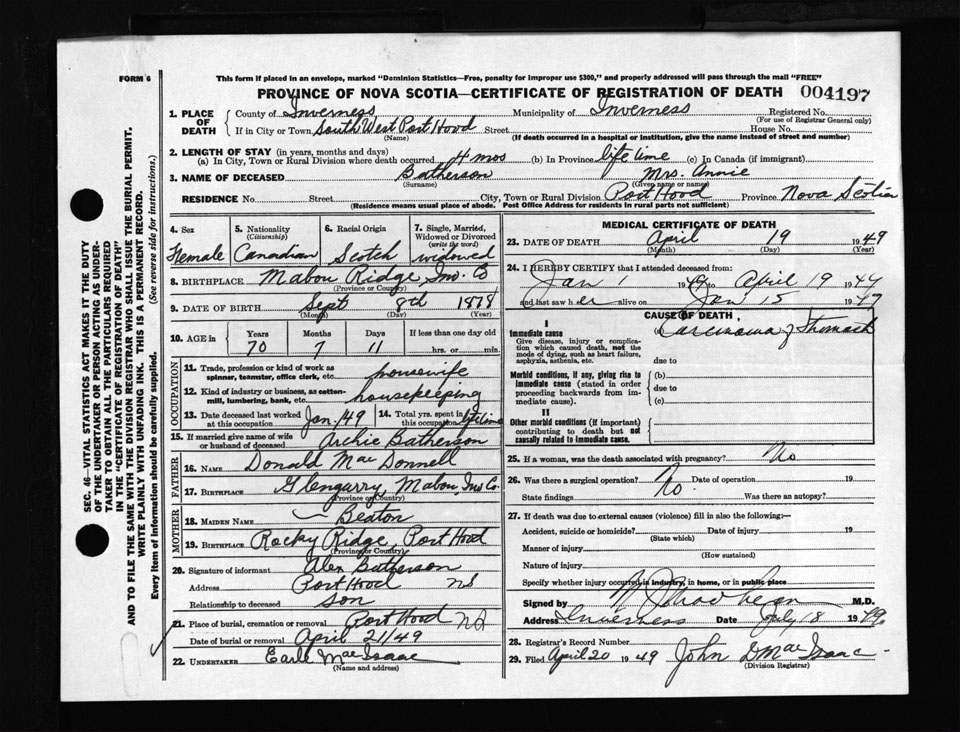 FORM 6
This form if placed in an envelope, marked "Dominion Statistics—Free, penalty for improper use $300," and properly addressed will pass through the mail "FREE"
PROVINCE OF NOVA SCOTIA—CERTIFICATE OF REGISTRATION OF DEATH 004197
1. PLACE OF DEATH
County of Inverness Municipality of Inverness Registered No.
(For use of Registrar General only)
If in City or Town South West Port Hood Street House No.
(Name) (If death occurred in a hospital or institution, give the name instead of street and number)
2. LENGTH OF STAY (in years, months and days)
(a) In City, Town or Rural Division where death occurred 4 mos (b) In Province life time (c) In Canada (if immigrant)
3. NAME OF DECEASED Batherson Mrs. Annie
(Surname) (Given name or names)
RESIDENCE No. Street City, Town or Rural Division Port Hood Province Nova Scotia
(Residence means usual place of abode. Post Office Address for residents in rural parts not sufficient)
4. Sex
Female
5. Nationality
(Citizenship)
Canadian
6. Racial Origin
Scotch
7. Single, Married, Widowed or Divorced
(write the word)
widowed
8. BIRTHPLACE Mabou Ridge, Inv. C
(Province or Country)
9. DATE OF BIRTH Sept 8th 1878
(Month) (Day) (Year)
10. AGE in
Years Months Days If less than one day old
70 7 11 hrs. or min.
OCCUPATION
11. Trade, profession or kind of work as spinner, teamster, office clerk, etc. housewife
12. Kind of industry or business, as cotton-mill, lumbering, bank, etc. housekeeping
13. Date deceased last worked at this occupation Jan/49
14. Total yrs. spent in this occupation lifetime
15. If married give name of wife or husband of deceased Archie Batherson
FATHER
16. NAME Donald MacDonnell
17. BIRTHPLACE Glengarry, Mabou, Inv Co.
(Province or Country)
MOTHER
18. MAIDEN NAME Beaton
19. BIRTHPLACE Rocky Ridge, Port Hood
(Province or Country)
20. Signature of informant Alex Batherson
Address Port Hood NS
Relationship to deceased Son
21. Place of burial, cremation or removal Port Hood NS
Date of burial or removal April 21/49
22. UNDERTAKER Earl MacIsaac
(Name and address)
MEDICAL CERTIFICATE OF DEATH
23. DATE OF DEATH April 19 1949
(Month) (Day) (Year)
24. I HEREBY CERTIFY that I attended deceased from:
Jan 1 1949 to April 19 1947
and last saw her alive on Jan 15 1947
CAUSE OF DEATH
I
Immediate cause
Give disease, injury or complication which caused death, not the mode of dying, such as heart failure, asphyxia, asthenia, etc.
(a) Carcinoma of Stomach
due to
Morbid conditions, if any, giving rise to immediate cause (stated in order proceeding backwards from immediate cause).
(b)
due to
(c)
II
Other morbid conditions (if important) contributing to death but not causally related to immediate cause.
25. If a woman, was the death associated with pregnancy? No
26. Was there a surgical operation? No. Date of operation 19
State findings Was there an autopsy?
27. If death was due to external causes (violence) fill in also the following:—
Accident, suicide or homicide? Date of injury 19
(State which)
Manner of injury
(How sustained)
Nature of injury
Specify whether injury occurred in industry, in home, or in public place
Signed by M.D.
Address Inverness Date July 18 1949
28. Registrar's Record Number
29. Filed April 20 1949 John D MacIsaac
(Division Registrar)
SEC. 46—VITAL STATISTICS ACT MAKES IT THE DUTY
OF THE UNDERTAKER OR PERSON ACTING AS UNDER-
TAKER TO OBTAIN ALL THE PARTICULARS REQUIRED
IN THE "CERTIFICATE OF REGISTRATION OF DEATH"
AND TO FILE THE SAME WITH THE DIVISION REGISTRAR WHO SHALL ISSUE THE BURIAL PERMIT.
WRITE PLAINLY WITH UNFADING INK. THIS IS A PERMANENT RECORD.
Every item of information should be carefully supplied. (See reverse side for instructions.)